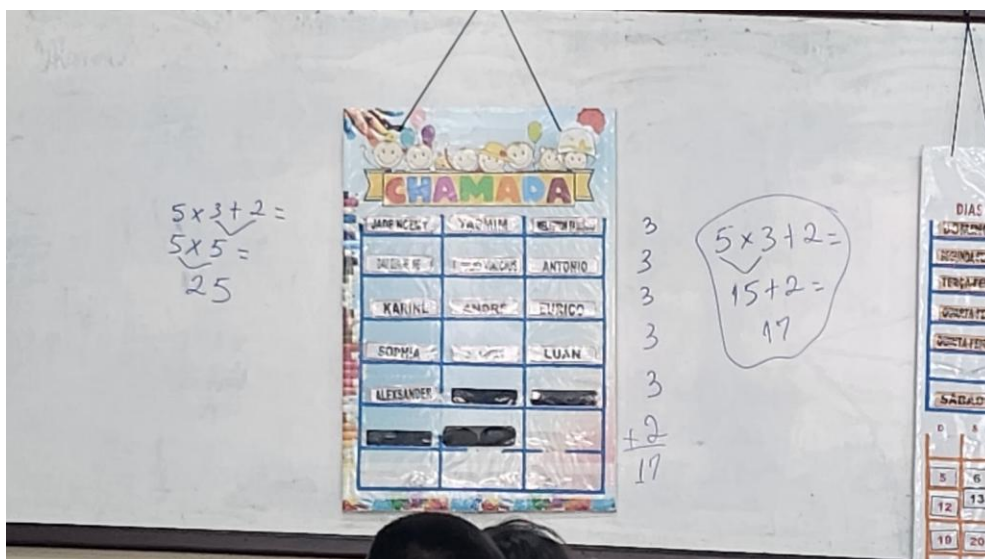 5 x 3 + 2 =
5 x 5 =
25
CHAMADA
YASMIM
ANTONIO
KARINE ANDRE EURICO
SOPHIA LUAN
ALEXSANDER
3
3
3
3
3
+2
17
5 x 3 + 2 =
15 + 2 =
17
DIAS
SÁBADO
D S
5 6
12 13
19 20